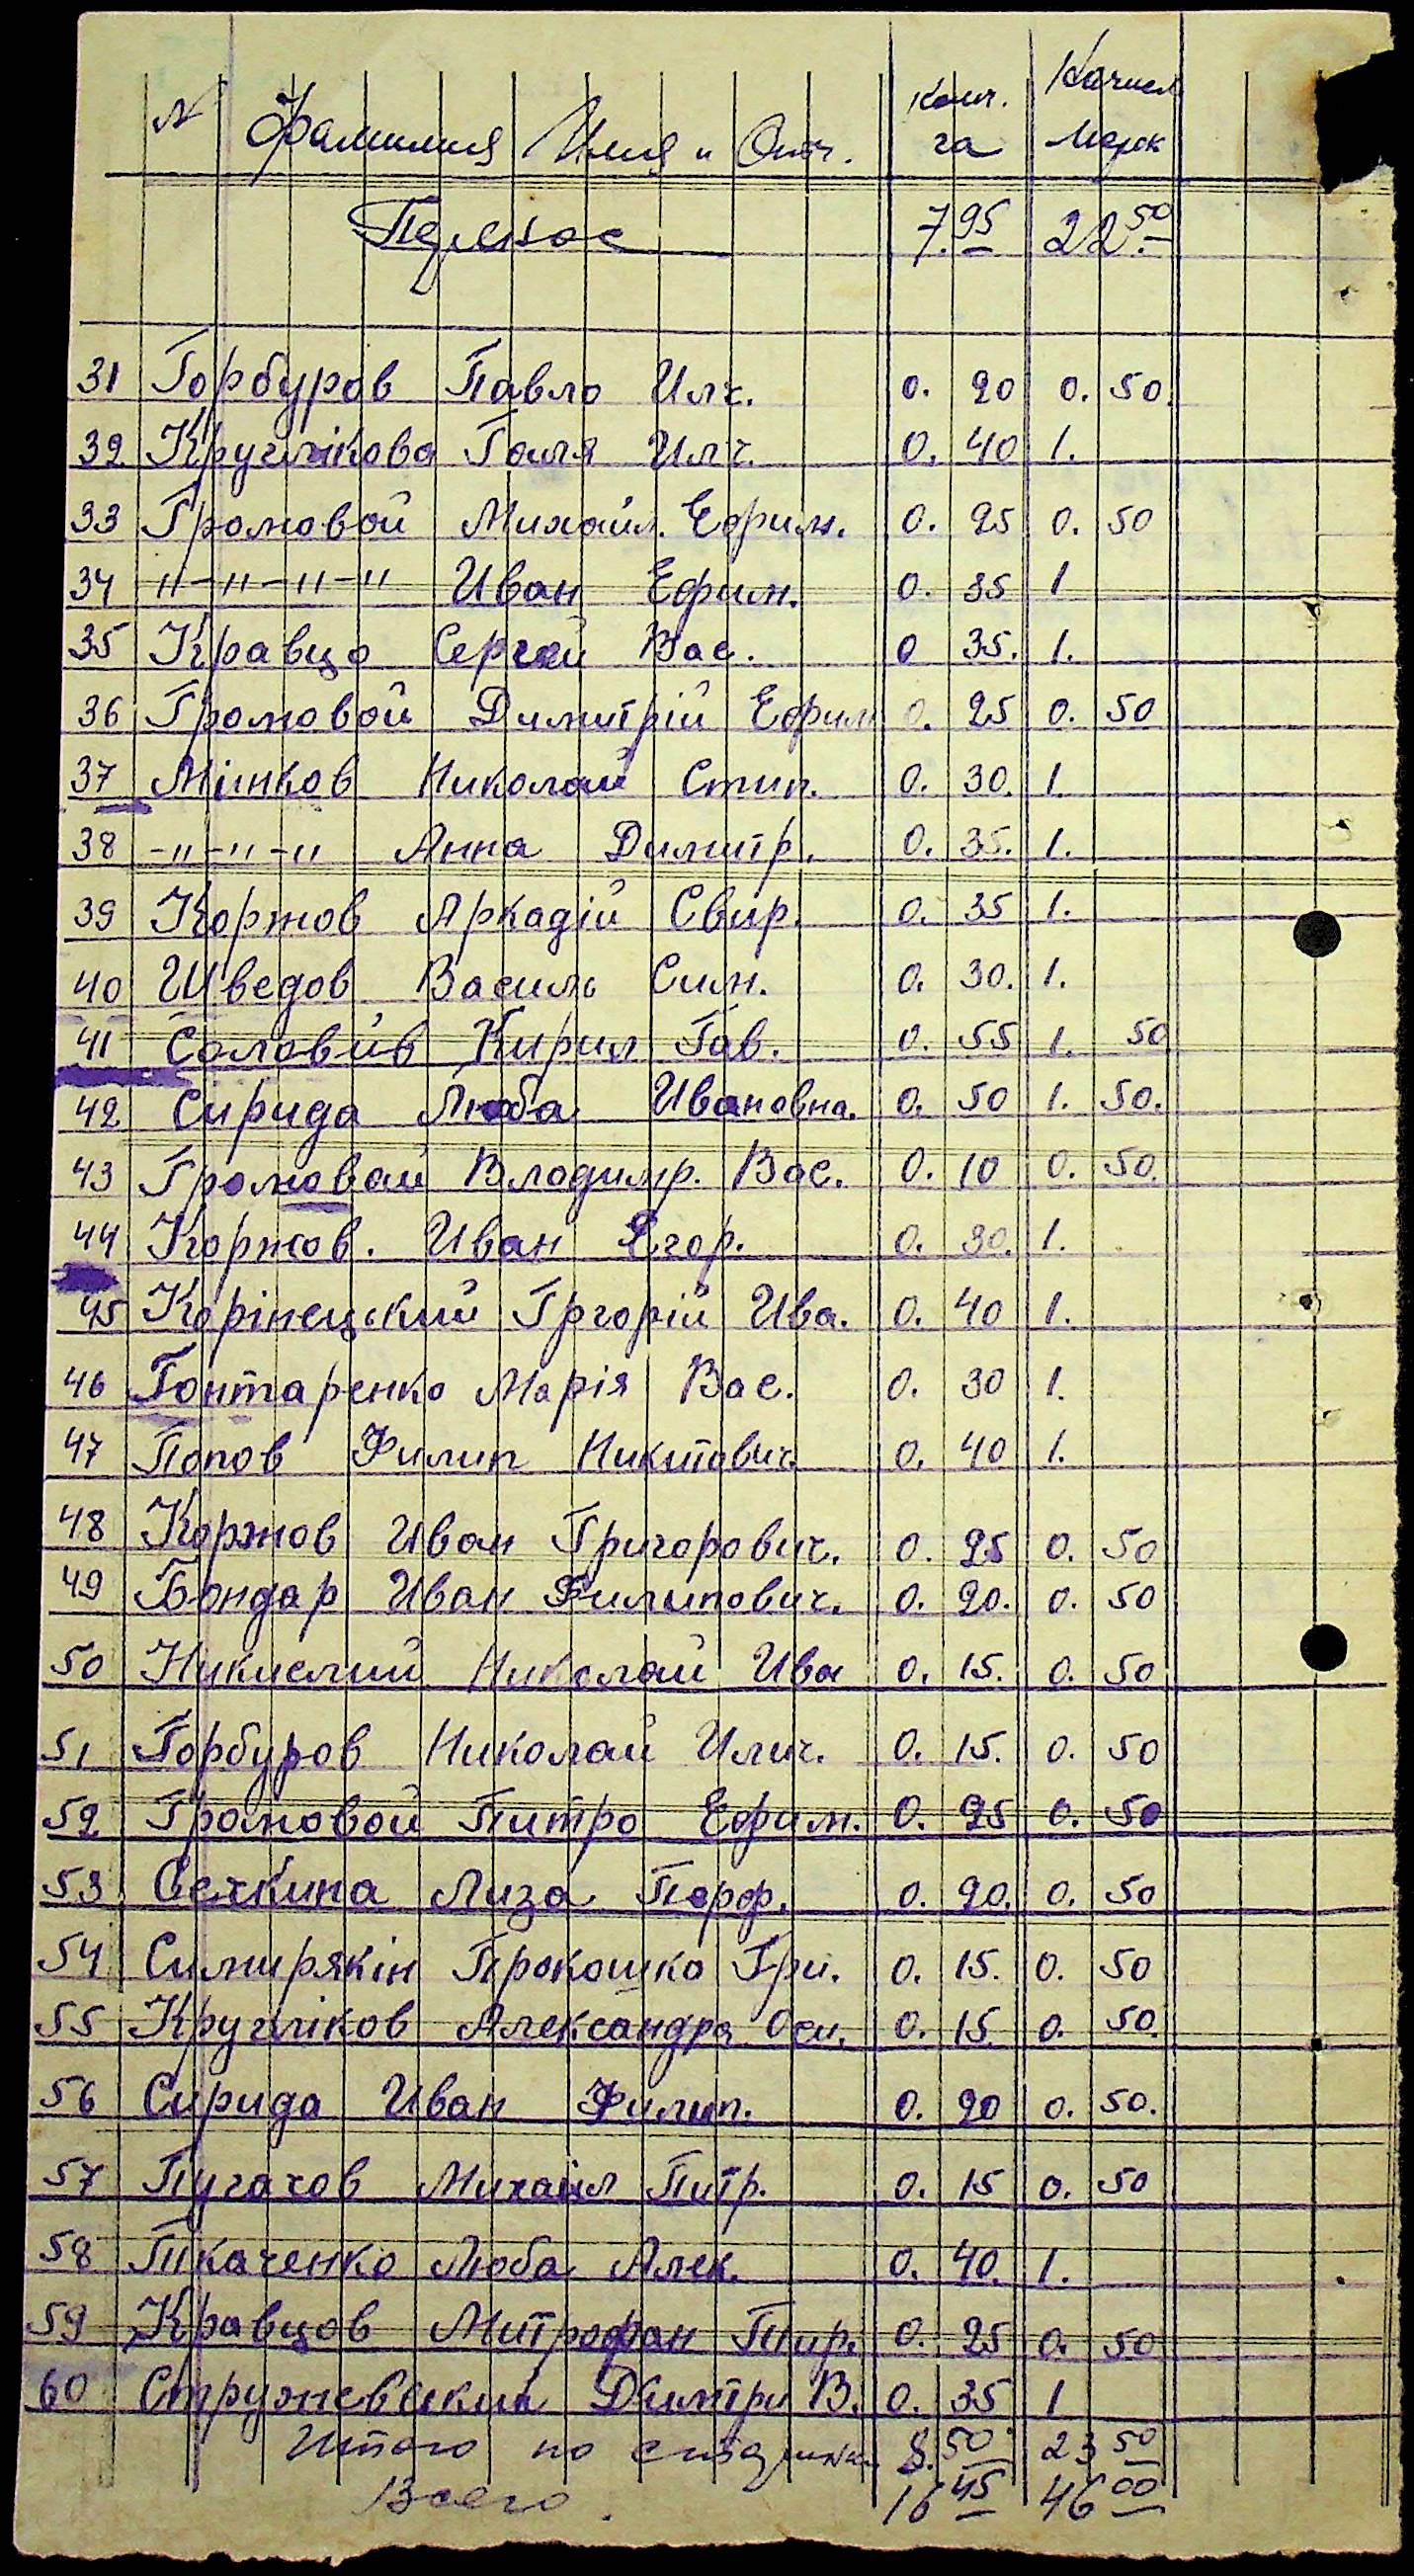 № Фамилия Имя и Отч. Колич. га Колич. Марок
Перенос 7.95 22.50
31 Горбуров Павло Илч. 0. 20 0. 50.
32 Кругликова Галя Илч. 0. 40 1.
33 Громовой Михайл. Ефим. 0. 25 0. 50
34 "-"-"-" Иван Ефим. 0. 35 1
35 Кравцо Сергей Вас. 0 35. 1.
36 Громовой Димитрій Ефим 0. 25 0. 50
37 Мінков Николай Стип. 0. 30. 1.
38 -"-"-" Анна Димитр. 0. 35. 1.
39 Коржов Аркадій Свир. 0. 35 1.
40 Шведов Василь Сим. 0. 30. 1.
41 Соловйв Кирил Гав. 0. 55 1. 50
42 Сирида Люба Ивановна. 0. 50 1. 50.
43 Громовой Владимр. Вас. 0. 10 0. 50.
44 Коржов. Иван Егор. 0. 30. 1.
45 Корінецкий Гргорій Ива. 0. 40 1.
46 Гонтаренко Марія Вас. 0. 30 1.
47 Попов Филип Никитович 0. 40 1.
48 Коржов Иван Григорович. 0. 25 0. 50
49 Бондар Иван Филипович. 0. 20. 0. 50
50 Николай Ива 0. 15. 0. 50
51 Горбуров Николай Илич. 0. 15. 0. 50
52 Громовой Питро Ефим. 0. 25 0. 50
53 Сечкина Лиза Порф. 0. 20. 0. 50
54 Симирякін Прокошка Гри. 0. 15. 0. 50
55 Кругліков Александра Оси. 0. 15. 0. 50.
56 Сирида Иван Филип. 0. 20 0. 50.
57 Пугачов Михаил Питр. 0. 15 0. 50
58 Ткаченко Люба Алек. 0. 40. 1.
59 Кравцов Митрофан 0. 25 0. 50
60 Стружевский Димтри В. 0. 35 1
Итого по 8.50 23 50
Всего. 16 45 46 00